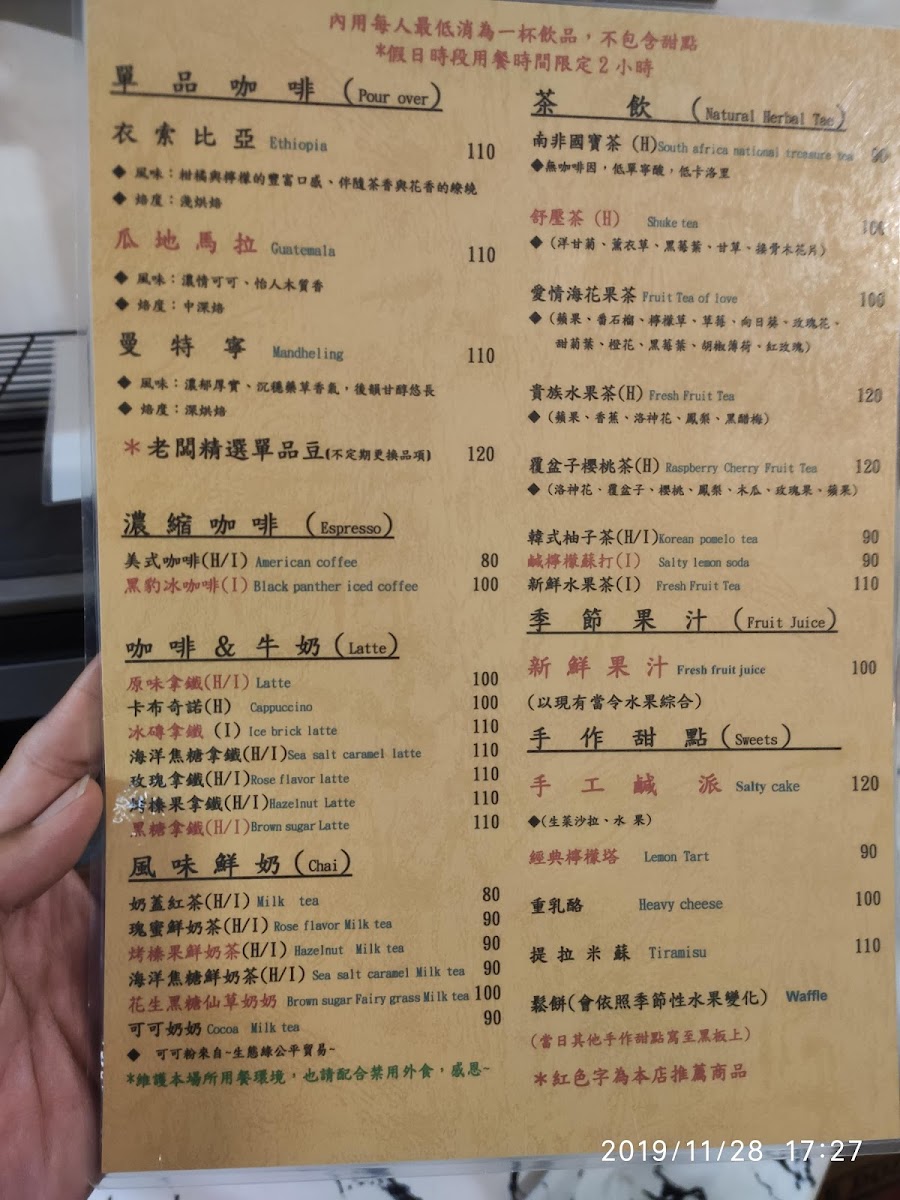 內用每人最低消為一杯飲品，不包含甜點
*假日時段用餐時間限定2小時
單品咖啡（Pour over）
衣索比亞 Ethiopia 110
◆ 風味：柑橘與檸檬的豐富口感、伴隨茶香與花香的繚繞
◆ 焙度：淺烘焙
瓜地馬拉 Guatemala 110
◆ 風味：濃情可可、怡人木質香
◆ 焙度：中深焙
曼特寧 Mandheling 110
◆ 風味：濃郁厚實、沉穩藥草香氣，後韻甘醇悠長
◆ 焙度：深烘焙
＊老闆精選單品豆(不定期更換品項) 120
濃縮咖啡（Espresso）
美式咖啡(H/I) American coffee 80
黑豹冰咖啡(I) Black panther iced coffee 100
咖啡&牛奶（Latte）
原味拿鐵(H/I) Latte 100
卡布奇諾(H) Cappuccino 100
冰磚拿鐵 (I) Ice brick latte 110
海洋焦糖拿鐵(H/I)Sea salt caramel latte 110
玫瑰拿鐵(H/I)Rose flavor latte 110
烤榛果拿鐵(H/I)Hazelnut Latte 110
黑糖拿鐵(H/I)Brown sugar Latte 110
風味鮮奶（Chai）
奶蓋紅茶(H/I) Milk tea 80
瑰蜜鮮奶茶(H/I) Rose flavor Milk tea 90
烤榛果鮮奶茶(H/I) Hazelnut Milk tea 90
海洋焦糖鮮奶茶(H/I) Sea salt caramel Milk tea 90
花生黑糖仙草奶奶 Brown sugar Fairy grass Milk tea 100
可可奶奶 Cocoa Milk tea 90
◆ 可可粉來自~生態綠公平貿易~
*維護本場所用餐環境，也請配合禁用外食，感恩~
茶飲（Natural Herbal Tae）
南非國寶茶 (H)South africa national treasure tea 90
◆無咖啡因，低單寧酸，低卡洛里
舒壓茶 (H) Shuke tea 100
◆（洋甘菊、薰衣草、黑莓葉、甘草、接骨木花片）
愛情海花果茶 Fruit Tea of love 100
◆（蘋果、番石榴、檸檬草、草莓、向日葵、玫瑰花、
甜菊葉、橙花、黑莓葉、胡椒薄荷、紅玫瑰）
貴族水果茶(H) Fresh Fruit Tea 120
◆（蘋果、香蕉、洛神花、鳳梨、黑醋梅）
覆盆子櫻桃茶(H) Raspberry Cherry Fruit Tea 120
◆（洛神花、覆盆子、櫻桃、鳳梨、木瓜、玫瑰果、蘋果）
韓式柚子茶(H/I)Korean pomelo tea 90
鹹檸檬蘇打(I) Salty lemon soda 90
新鮮水果茶(I) Fresh Fruit Tea 110
季節果汁（Fruit Juice）
新鮮果汁 Fresh fruit juice 100
(以現有當令水果綜合)
手作甜點（Sweets）
手工鹹派 Salty cake 120
◆(生菜沙拉、水 果)
經典檸檬塔 Lemon Tart 90
重乳酪 Heavy cheese 100
提拉米蘇 Tiramisu 110
鬆餅(會依照季節性水果變化) Waffle
(當日其他手作甜點寫至黑板上)
＊紅色字為本店推薦商品
2019/11/28 17:27